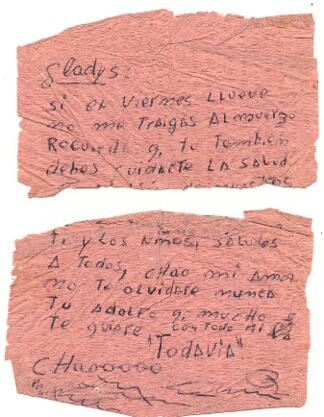 Gladys:
Si el Viernes LLueve
no me TRaigas Almuerzo
Recuerda q. tu También
debes cuidarte LA SALud
Ti y Los niños, saludos
A Todos, chao mi Amor
no Te olvidaré nunca
Tu Adolfo q. mucho
Te quiere con Todo mi
"TodAviA"
CHaooooo